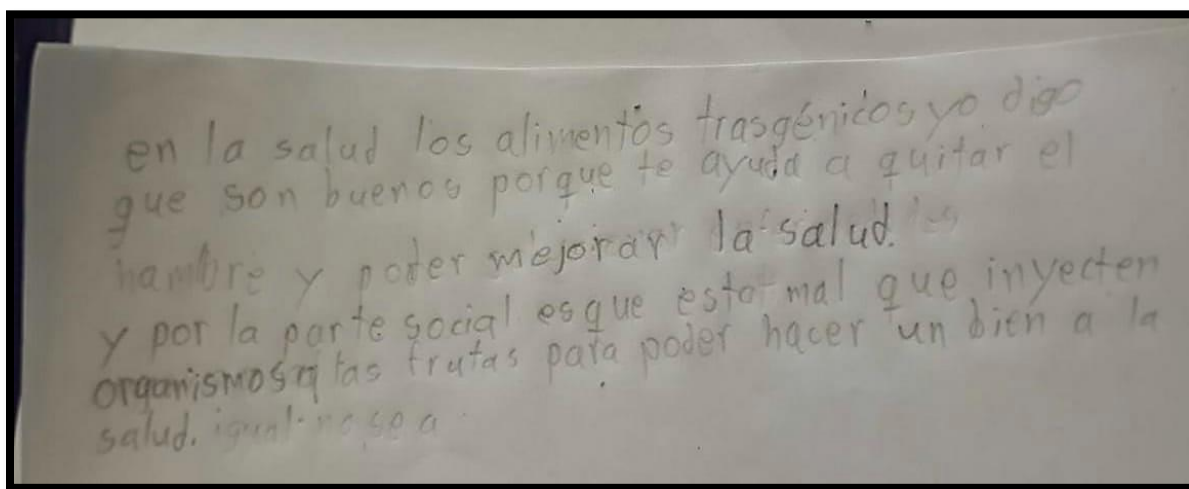 en la salud los alimentos trasgénicos yo digo
que son buenos porque te ayuda a quitar el
hambre y poder mejorar la salud.
y por la parte social es que esta mal que inyecten
organismos a las frutas para poder hacer un bien a la
salud. igual no se a